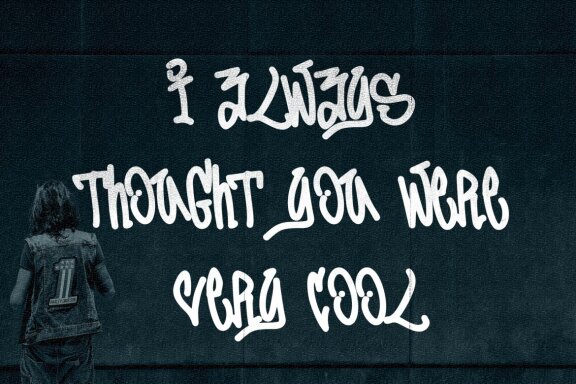 I ALWAYS
THOUGHT YOU WERE
VERY COOL
1